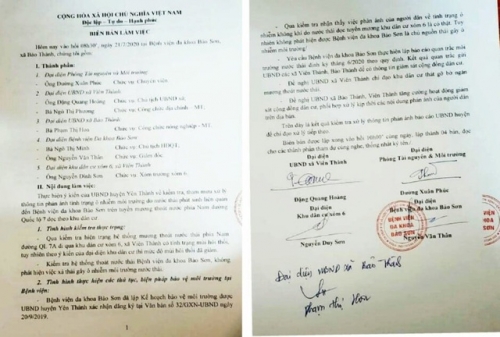 CỘNG HÒA XÃ HỘI CHỦ NGHĨA VIỆT NAM
Độc lập - Tự do - Hạnh phúc
BIÊN BẢN LÀM VIỆC
Hôm nay vào hồi 08h30', ngày 21/7/2020 tại Bệnh viện đa khoa Bảo Sơn,
xã Bảo Thành, chúng tôi gồm:
I. Thành phần:
1. Đại diện Phòng Tài nguyên và Môi trường
- Ông Dương Xuân Phúc Chức vụ: Chuyên viên
2. Đại diện UBND xã Viên Thành
- Ông Đặng Quang Hoàng Chức vụ: Chủ tịch UBND xã
- Bà Ngô Thị Phương Chức vụ: Công chức địa chính - MT.
3. Đại diện UBND xã Bảo Thành
- Bà Phạm Thị Hoa Chức vụ: Công chức nông nghiệp - MT.
4. Đại diện Bệnh viện Đa khoa Bảo Sơn
- Bà Ngô Thị Minh Chức vụ: Chủ tịch HĐQT.
- Ông Nguyễn Văn Thân Chức vụ: Giám đốc.
5. Đại diện khu dân cư xóm 6, xã Viên Thành
- Ông Nguyễn Đình Sơn Chức vụ: Xóm trưởng xóm 6.
II. Nội dung làm việc:
Thực hiện ý kiến của UBND huyện Yên Thành về kiểm tra, tham mưu xử lý
thông tin phản ánh tình trạng ô nhiễm môi trường do nước thải phát sinh liên quan
đến Bệnh viện đa khoa Bảo Sơn trên tuyến mương thoát nước phía Nam đường
Quốc lộ 7 đoạn theo khu dân cư
1. Tình hình kiểm tra thực trạng:
- Qua kiểm tra hiện trạng hệ thống mương thoát nước thải phía Nam
đường QL 7A đi qua khu dân cư xóm 6, xã Viên Thành có tình trạng mùi hôi thối,
tuy nhiên theo ý kiến của đại diện khu dân cư thì mức độ mùi hôi thối đã giảm.
- Kiểm tra hệ thống thoát nước thải Bệnh viện đa khoa Bảo Sơn, không
phát hiện việc xả thải gây ô nhiễm mương thoát nước thải.
2. Tình hình thực hiện các thủ tục, biện pháp bảo vệ môi trường tại
Bệnh viện:
- Bệnh viện đa khoa Bảo Sơn đã lập Kế hoạch bảo vệ môi trường được
UBND huyện Yên Thành xác nhận đăng ký tại Văn bản số 32/GXN-UBND ngày
20/9/2019.
1
- Qua kiểm tra nhận thấy việc phản ánh của người dân về tình trạng ô
nhiễm không khí do nước thải dọc tuyến mương khu dân cư xóm 6 là có thật. Tuy
nhiên không phát hiện được Bệnh viện đa khoa Bảo Sơn là chủ nguồn thải gây ô
nhiễm.
- Yêu cầu Bệnh viện đa khoa Bảo Sơn thực hiện lập báo cáo quan trắc môi
trường nước thải định kỳ tháng 6/2020 theo quy định. Kết quả quan trắc gửi
UBND các xã Viên Thành, Bảo Thành để có thông tin giám sát cộng đồng dân cư.
- Đề nghị UBND xã Viên Thành chỉ đạo khu dân cư thả bèo ở mương
thoát ngăn nước thải.
- Đề nghị UBND xã Bảo Thành, Viên Thành tăng cường hoạt động giám
sát cộng đồng dân cư, phối hợp xử lý kịp thời các nội dung phản ánh của người dân
trên địa bàn.
Trên đây là kết quả kiểm tra xử lý thông tin phản ánh báo cáo UBND huyện
để chỉ đạo xử lý tiếp theo.
Biên bản được lập xong vào hồi 10h00' cùng ngày, lập thành 04 bản, đọc
cho các thành phần tham dự cùng nghe, thống nhất ký tên:
Đại diện
UBND xã Viên Thành
Đại diện
Phòng Tài nguyên & Môi trường
Đặng Quang Hoàng
Đại diện
Khu dân cư xóm 6
Dương Xuân Phúc
Đại diện
Bệnh viện đa khoa Bảo Sơn
BỆNH VIỆN
ĐA KHOA
BẢO SƠN
Nguyễn Duy Sơn
Nguyễn Văn Thân
Đại diện UBND xã Bảo Thành
Phạm Thị Hoa